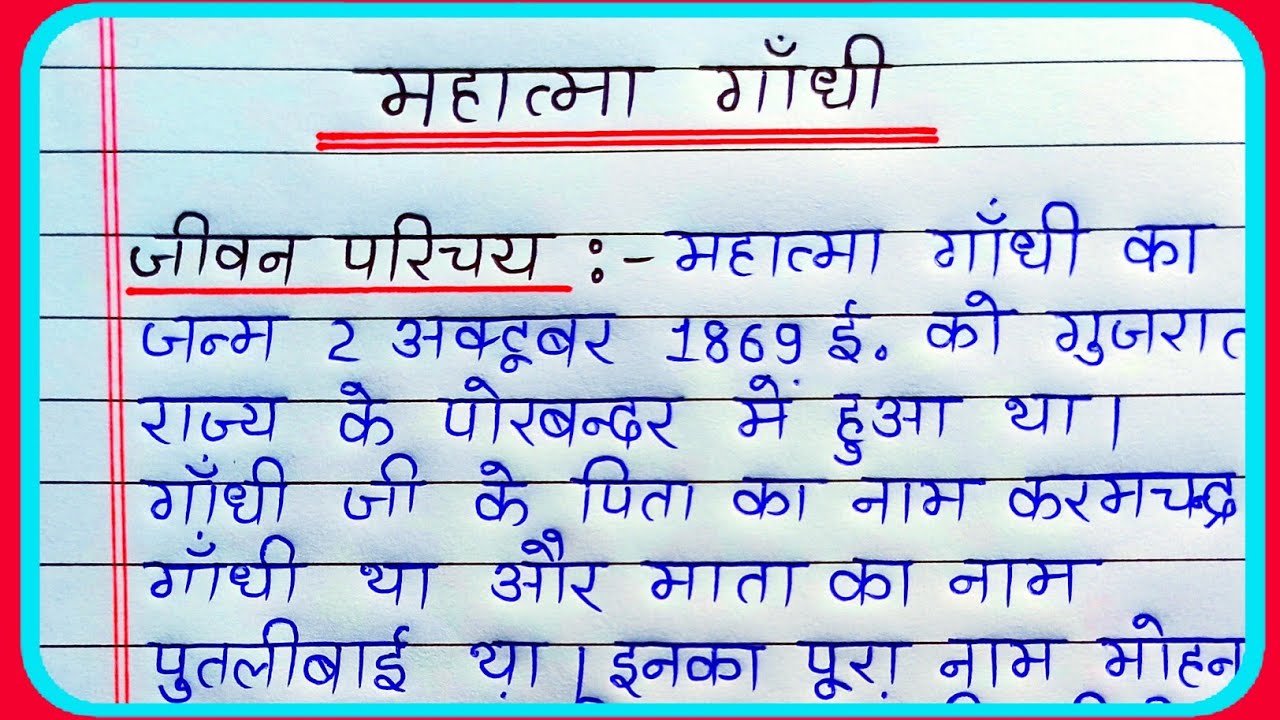 महात्मा गाँधी
जीवन परिचय :- महात्मा गाँधी का
जन्म 2 अक्टूबर 1869 ई. को गुजरात
राज्य के पोरबन्दर में हुआ था।
गाँधी जी के पिता का नाम करमचन्द्र
गाँधी था और माता का नाम
पुतलीबाई था। इनका पूरा नाम मोहन